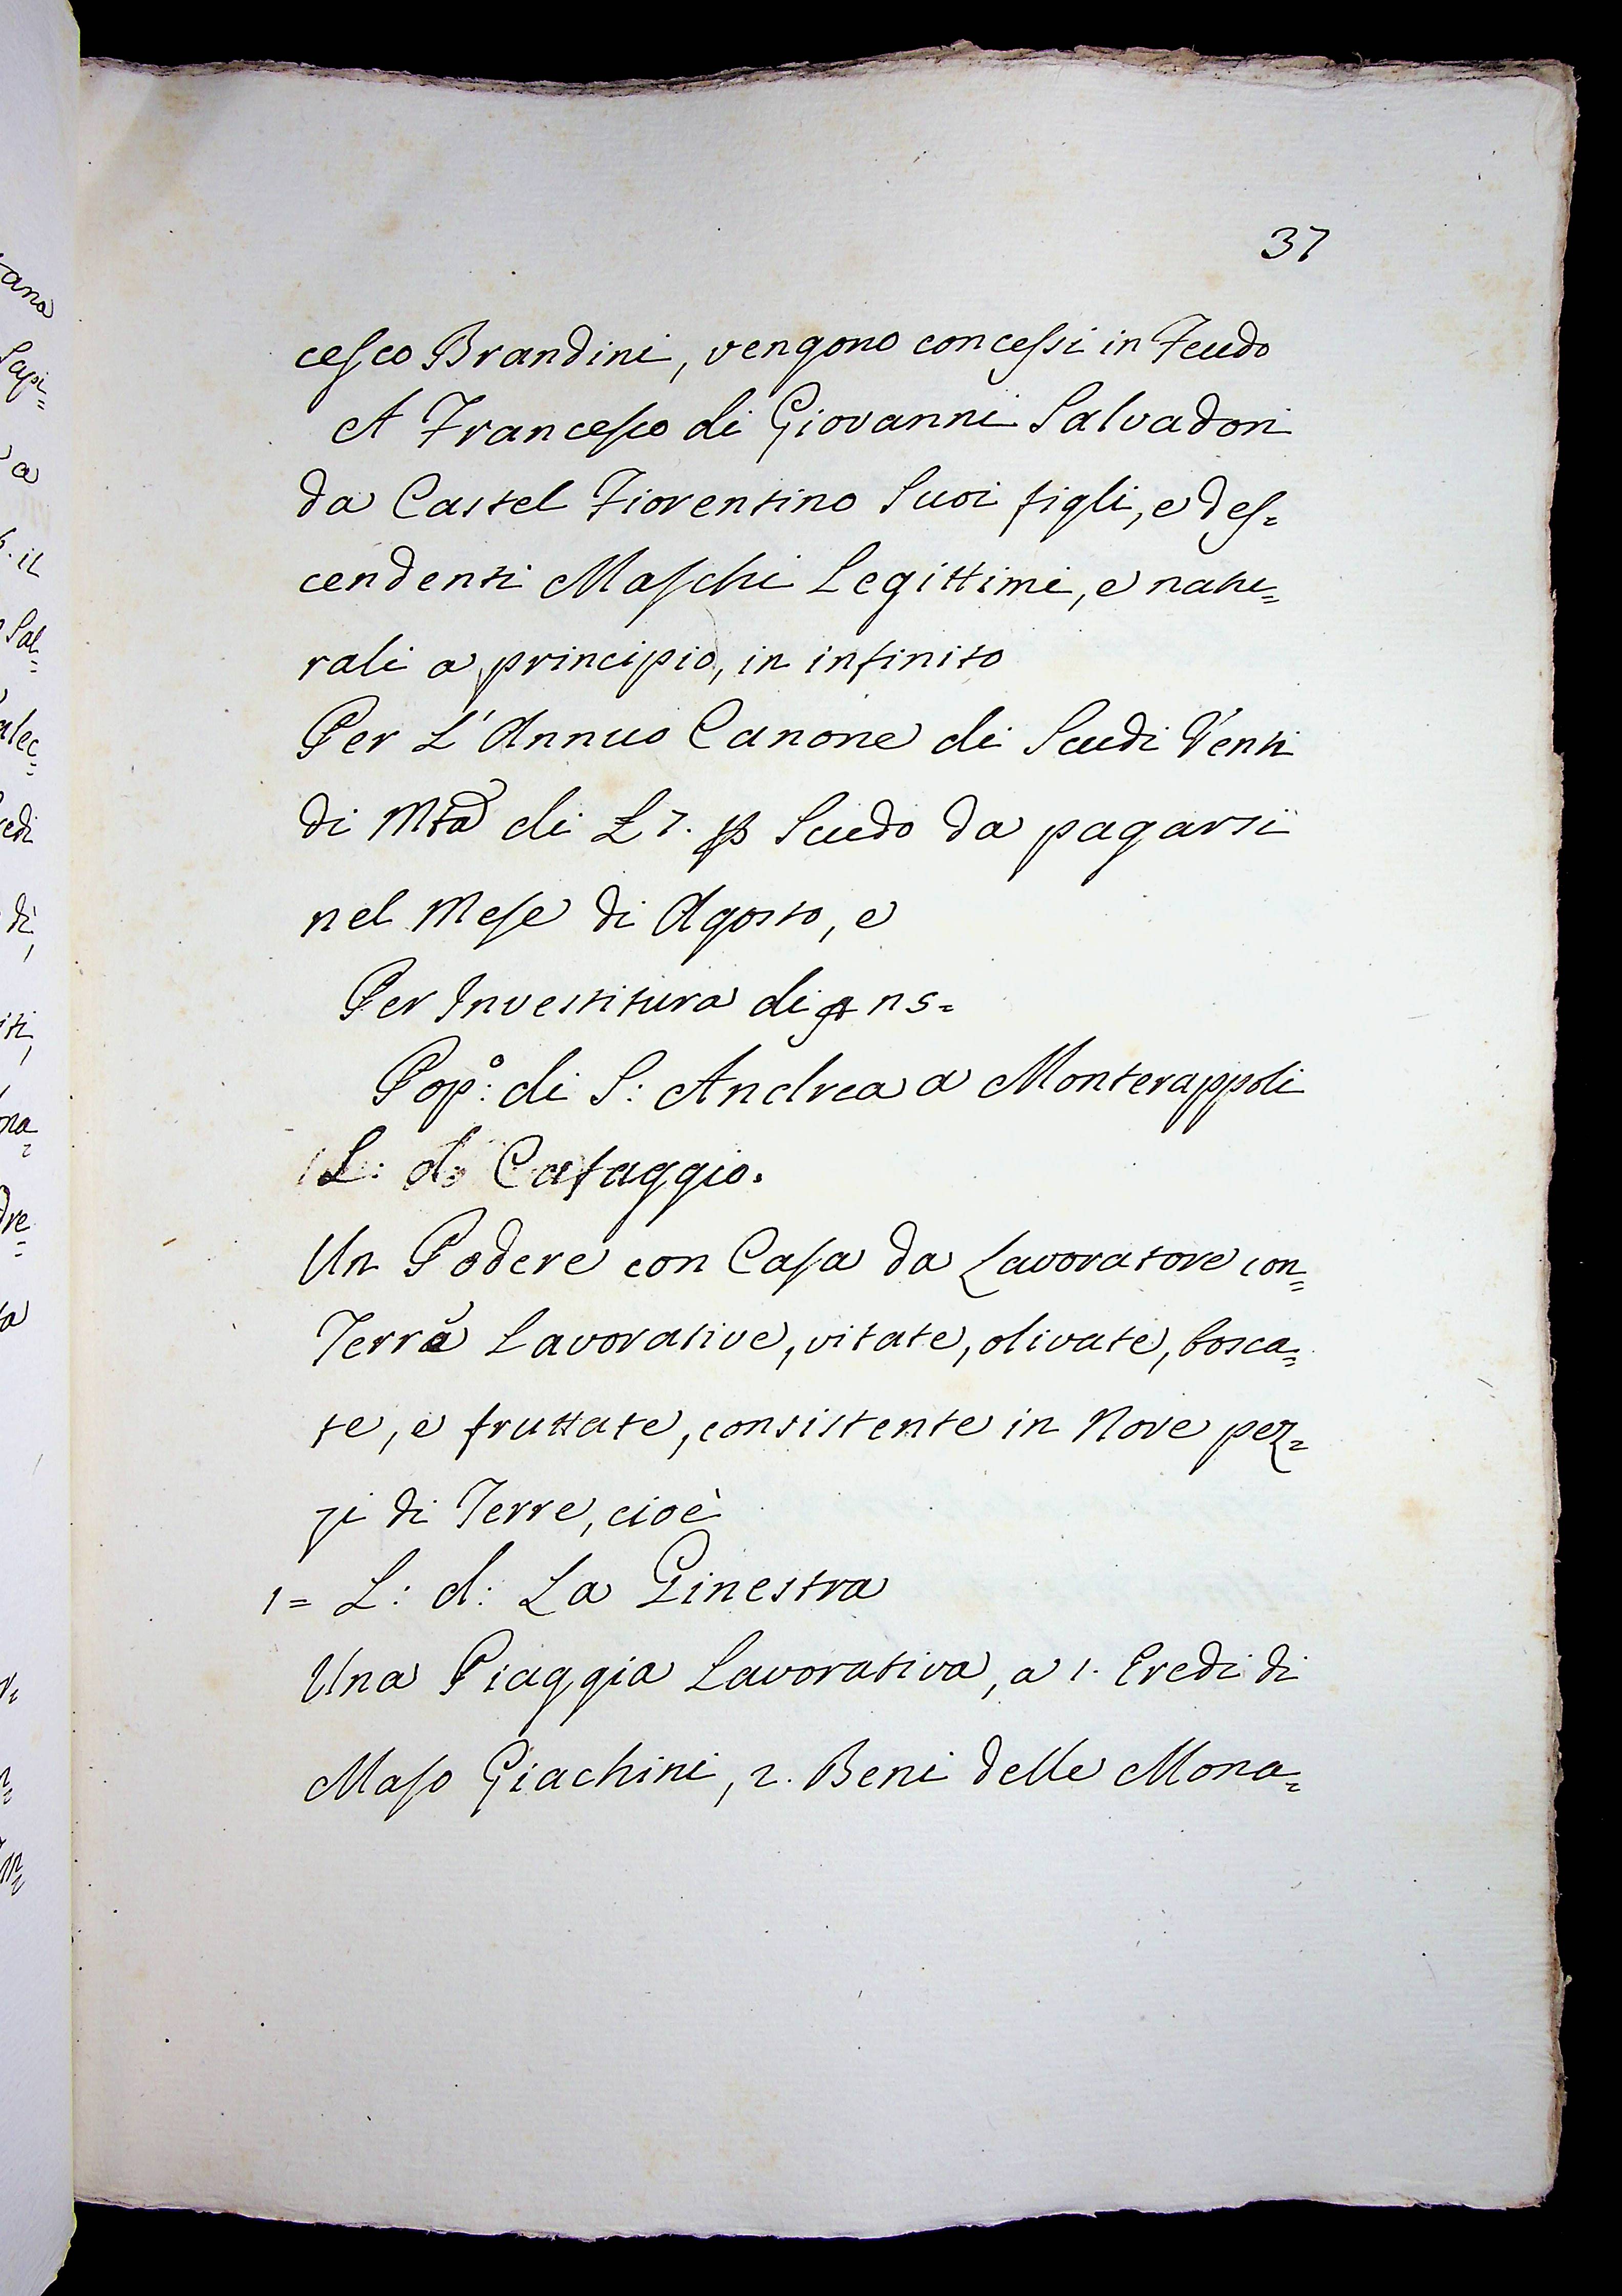 37
cesco Brandini, vengono concessi in Feudo
A Francesco di Giovanni Salvadori
da Castel Fiorentino Suoi figli, e des=
cendenti Maschi Legittimi, e natu=
rali a principio, in infinito
Per L'Annuo Canone di Scudi Venti
di Mta di £ 7. p Scudo da pagarsi
nel Mese di Agosto, e
Per Investitura di ns=
Pop:° di S: Andrea a Monterappoli
L: d: Cafaggio.
Un Podere con Casa da Lavoratore con=
Terre Lavorative, vitate, olivate, bosca=
te, e fruttate, consistente in Nove pez=
zi di Terre, cioè
1= L: d: La Ginestra
Una Piaggia Lavorativa, a 1. Eredi di
Maso Giachini, 2. Beni delle Mona=